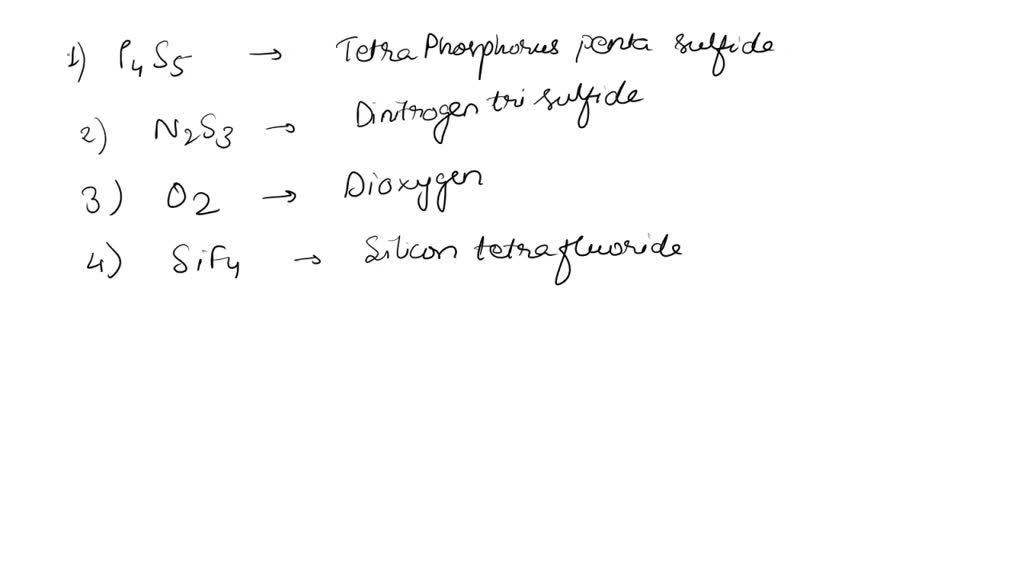 1) P4S5 → Tetra Phosphorus penta sulfide
2) N2S3 → Dinitrogen tri sulfide
3) O2 → Dioxygen
4) SiF4 → Silicon tetrafluoride